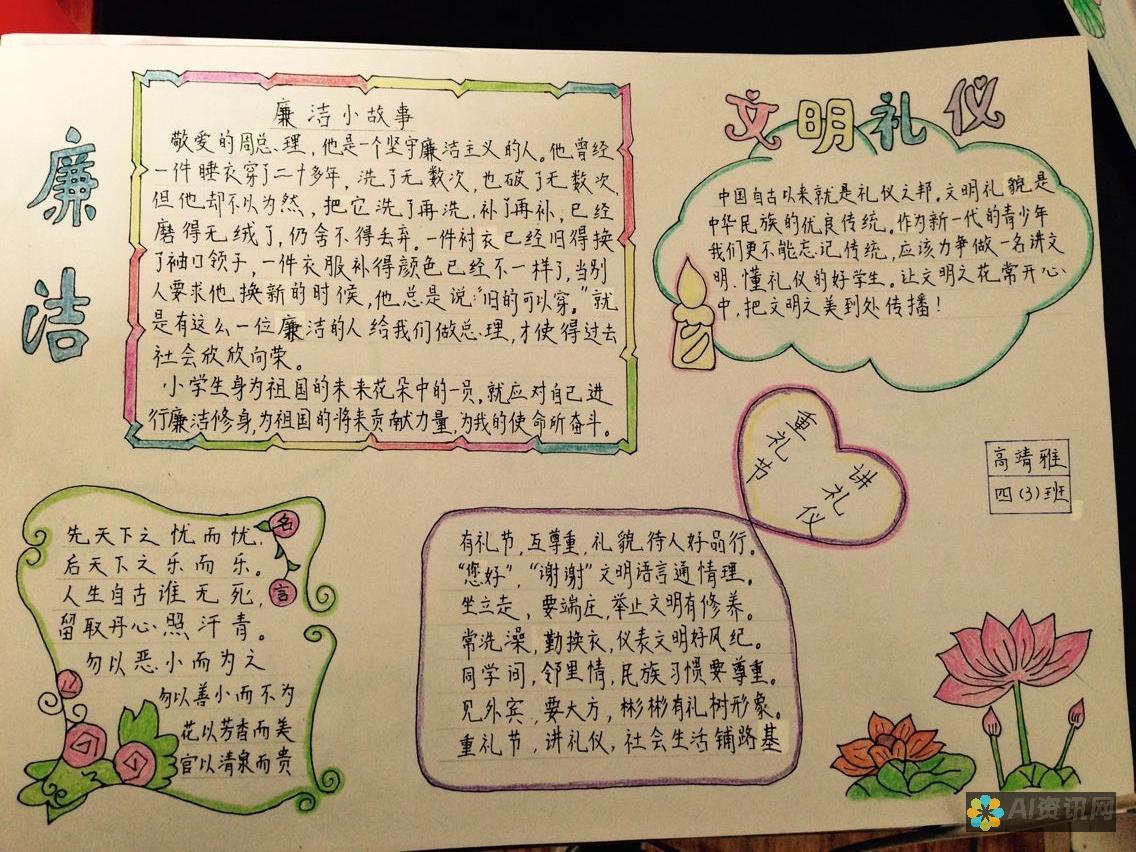 廉
洁
廉洁小故事
敬爱的周总理，他是一个坚守廉洁主义的人。他曾经
一件睡衣穿了二十多年，洗了无数次，也破了无数次，
但他却不以为然，把它洗了再洗，补了再补，已经
磨得无绒了，仍舍不得丢弃。一件衬衣已经旧得换
了袖口领子，一件衣服补得颜色已经不一样了，当别
人要求他换新的时候，他总是说：“旧的可以穿。”就
是有这么一位廉洁的人给我们做总理，才使得过去
社会欣欣向荣。
小学生身为祖国的未来花朵中的一员，就应对自己进
行廉洁修身，为祖国的将来贡献力量，为我的使命所奋斗。
文明礼仪
中国自古以来就是礼仪之邦。文明礼貌是
中华民族的优良传统。作为新一代的青少年
我们更不能忘记传统，应该力争做一名讲文
明、懂礼仪的好学生。让文明之花常开心
中，把文明之美到处传播！
重礼节
讲礼仪
高靖雅
四(3)班
名言
先天下之忧而忧，
后天下之乐而乐。
人生自古谁无死，
留取丹心照汗青。
勿以恶小而为之
勿以善小而不为
花以芳香而美
官以清泉而贵
有礼节，互尊重，礼貌待人好品行。
“您好”，“谢谢”文明语言通情理。
坐立走，要端庄，举止文明有修养。
常洗澡，勤换衣，仪表文明好风纪。
同学间，邻里情，民族习惯要尊重。
见外宾，要大方，彬彬有礼树形象。
重礼节，讲礼仪，社会生活铺路基
AI资讯网